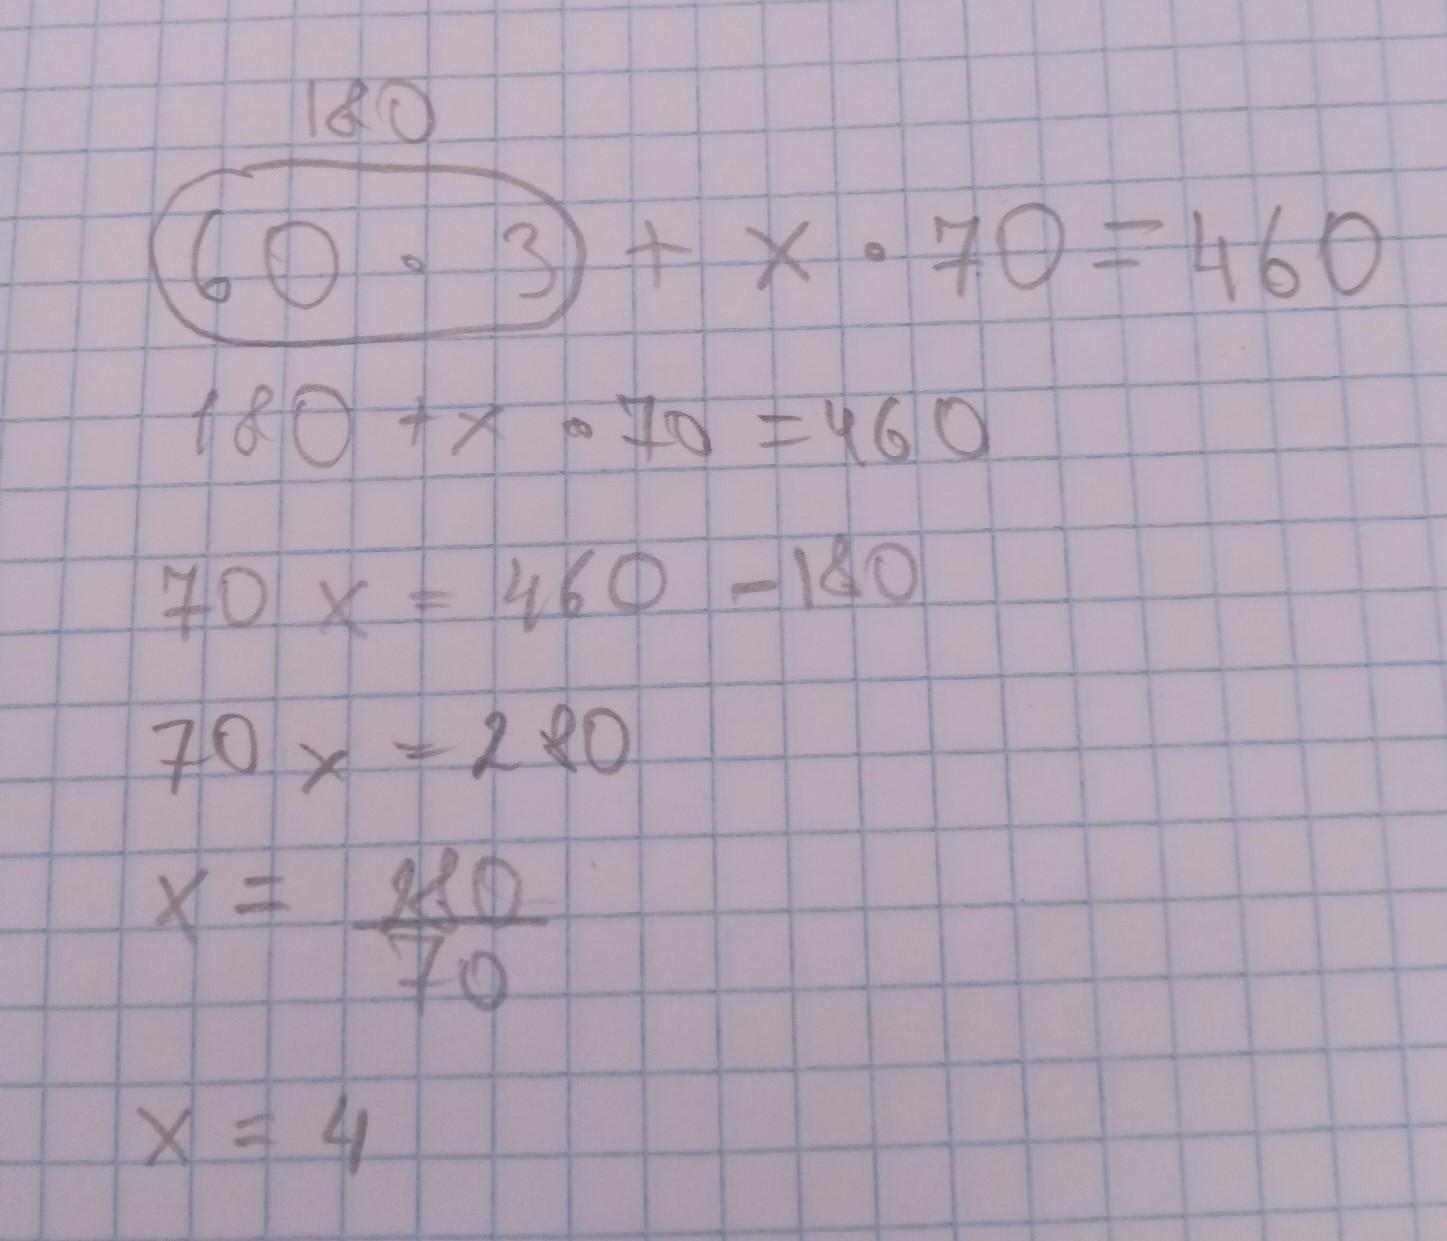 180
60 · 3 + x · 70 = 460
180 + x · 70 = 460
70 x = 460 - 180
70 x = 280
x = 280/70
x = 4